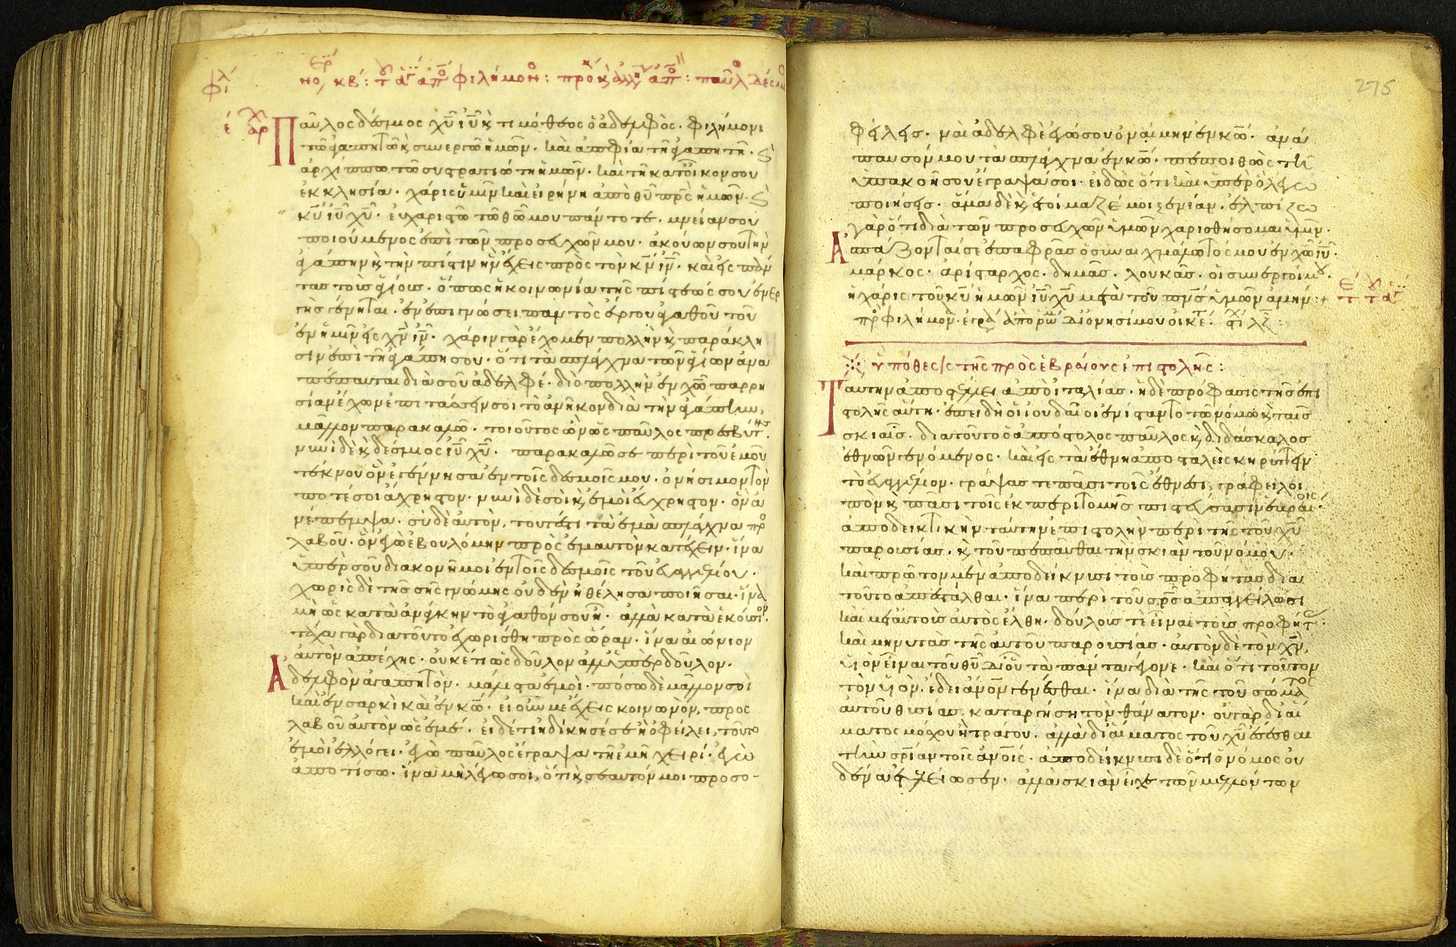 Παῦλος δέσμιος χῦ ἰῦ κ τιμόθεος ὁ ἀδελφὸς· φιλήμονι
τῶ ἀγαπητῶ κ συνεργῶ ἡμῶν· καὶ ἀπφία τῆ ἀγαπητῆ·
ἀρχίππω τῶ συστρατιώτη ἡμῶν· καὶ τῆ κατοἶκον σου
ἐκκλησία· χάρις ὑμῖν καὶ εἰρήνη ἀπὸ θῦ πρς ἡμῶν·
κῦ ἰῦ χῦ· εὐχαριστῶ τῶ θῶ μου πάντοτε· μνείαν σου
ποιούμενος ἐπὶ τῶν προσευχῶν μου· ἀκούων σου τὴν
ἀγάπην κ τὴν πίστιν ἣν ἔχεις πρὸς τὸν κν ἰν· καὶ εἰς πάν
τας τοὺς ἁγίους· ὅπως ἡ κοινωνία τῆς πίστεώς σου ἐνερ
γὴς γένηται· ἐν ἐπιγνώσει παντὸς ἔργου ἀγαθοῦ τοῦ
ἐν ἡμῖν εἰς χν ἰν· χάριν γὰρ ἔχομεν πολλὴν κ παράκλη
σιν ἐπὶ τῆ ἀγάπη σου· ὅτι τὰ σπλάγχνα τῶν ἁγίων ἀνα
πέπαυται διὰ σοῦ ἀδελφέ· διὸ πολλὴν ἐν χῶ παρρη
σίαν ἔχων ἐπιτάσσειν σοι τὸ ἀνῆκον διὰ τὴν ἀγάπην,
μᾶλλον παρακαλῶ· τοιοῦτος ὢν ὡς παῦλος πρεσβύτης·
νυνὶ δὲ κ δέσμιος ἰῦ χῦ· παρακαλῶ σε περὶ τοῦ ἐμοῦ
τέκνου ὃν ἐγέννησα ἐν τοῖς δεσμοῖς μου· ὀνήσιμον τόν
ποτέ σοι ἄχρηστον· νυνὶ δὲ σοὶ κ ἐμοὶ εὔχρηστον· ὃν ἀ
νέπεμψα· σὺ δὲ αὐτὸν, τουτέστι τὰ ἐμὰ σπλάγχνα προ
λαβοῦ· ὃν ἐγὼ ἐβουλόμην πρὸς ἐμαυτὸν κατέχειν· ἵνα
ὑπὲρ σοῦ διακονῆ μοι ἐν τοῖς δεσμοῖς τοῦ εὐαγγελίου·
χωρὶς δὲ τῆς σῆς γνώμης οὐδὲν ἠθέλησα ποιῆσαι· ἵνα
μὴ ὡς κατὰ ἀνάγκην τὸ ἀγαθόν σου ἦ· ἀλλὰ κατὰ ἑκούσιον·
τάχα γὰρ διατοῦτο ἐχωρίσθη πρὸς ὥραν· ἵνα αἰώνιον
αὐτὸν ἀπέχης· οὐκέτι ὡς δοῦλον ἀλλ' ὑπὲρ δοῦλον·
Ἀδελφὸν ἀγαπητὸν· μάλιστα ἐμοὶ· πόσω δὲ μᾶλλον σοὶ
καὶ ἐν σαρκὶ καὶ ἐν κῶ· εἰ οὖν με ἔχεις κοινωνὸν, προς
λαβοῦ αὐτὸν ὡς ἐμέ· εἰ δέ τι ἠδίκησέ σε ἢ ὀφείλει, τοῦτο
ἐμοὶ ἐλλόγει· ἐγὼ παῦλος ἔγραψα τῆ ἐμῆ χειρί· ἐγὼ
ἀποτίσω· ἵνα μὴ λέγω σοι, ὅτι κ σεαυτόν μοι προσο-
275
φείλεις· ναὶ ἀδελφὲ ἐγώ σου ὀναίμην ἐν κῶ· ἀνά
παυσόν μου τὰ σπλάγχνα ἐν κῶ· πεποιθὼς τῆ
ὑπακοῆ σου ἔγραψά σοι· εἰδὼς ὅτι καὶ ὑπὲρ ὃ λέγω
ποιήσεις· ἅμα δὲ κ ἑτοίμαζέ μοι ξενίαν· ἐλπίζω
γὰρ ὅτι διὰ τῶν προσευχῶν ὑμῶν χαρισθήσομαι ὑμῖν·
Ἀσπάζονταί σε ἐπαφρᾶς ὁ συναιχμάλωτός μου ἐν χῶ ἰῦ·
μάρκος· ἀρίσταρχος· δημᾶς· λουκᾶς· οἱ συνεργοί μου·
ἡ χάρις τοῦ κῦ ἡμῶν ἰῦ χῦ μετὰ τοῦ πνς ὑμῶν ἀμήν:+
ὑπόθεσις τῆς πρὸς ἑβραίους ἐπιστολῆς:
Ταύτην ἀποστέλλει ἀπὸ ἰταλίας· ἡ δὲ πρόφασις τῆς ἐπι
στολῆς αὕτη· ἐπειδὴ οἱ ἰουδαῖοι ἐνίσταντο τῶ νόμω κ ταῖς
σκιαῖς· διατοῦτο ὁ ἀπόστολος παῦλος κ διδάσκαλος
ἐθνῶν γενόμενος· καὶ εἰς τὰ ἔθνη ἀποσταλεὶς κηρύξαι
τὸ εὐαγγέλιον· γράψας τε πᾶσι τοῖς ἔθνεσι, γράφει λοι
πὸν κ πᾶσι τοῖς ἐκ περιτομῆς πιστεύσασιν ἑβραίοις
ἀποδεικτικὴν ταύτην ἐπιστολὴν περὶ τῆς τοῦ χῦ
παρουσίας· κ τοῦ πεπαῦσθαι τὴν σκιὰν τοῦ νόμου·
καὶ πρῶτον μὲν ἀποδείκνυσι τοὺς προφήτας διὰ
τοῦτο ἀπεστάλθαι· ἵνα περὶ τοῦ σρς ἀπαγγείλωσι
καὶ μεταυτοὺς αὐτὸς ἔλθη· δούλους τε εἶναι τοὺς προφήτας·
καὶ μηνυτὰς τῆς αὐτοῦ παρουσίας· αὐτὸν δὲ τὸν χν
υἱὸν εἶναι τοῦ θῦ δι' οὗ τὰ πάντα γέγονε· καὶ ὅτι τοῦτον
τὸν υἱὸν, ἔδει ἄνον γενέσθαι· ἵνα διὰ τῆς τοῦ σώματος
αὐτοῦ θυσίας καταργήση τὸν θάνατον· οὐ γὰρ δι' αἵ
ματος μόχων ἢ τράγου· ἀλλὰ δι' αἵματος τοῦ χῦ ἔσεσθαι
τὴν σρίαν τοῖς ἀνοις· ἀποδείκνυσι δὲ ὅτι ὁ νόμος οὐ
δένα ἐτελείωσεν· ἀλλὰ σκιὰν εἶχε τῶν μελλόντων